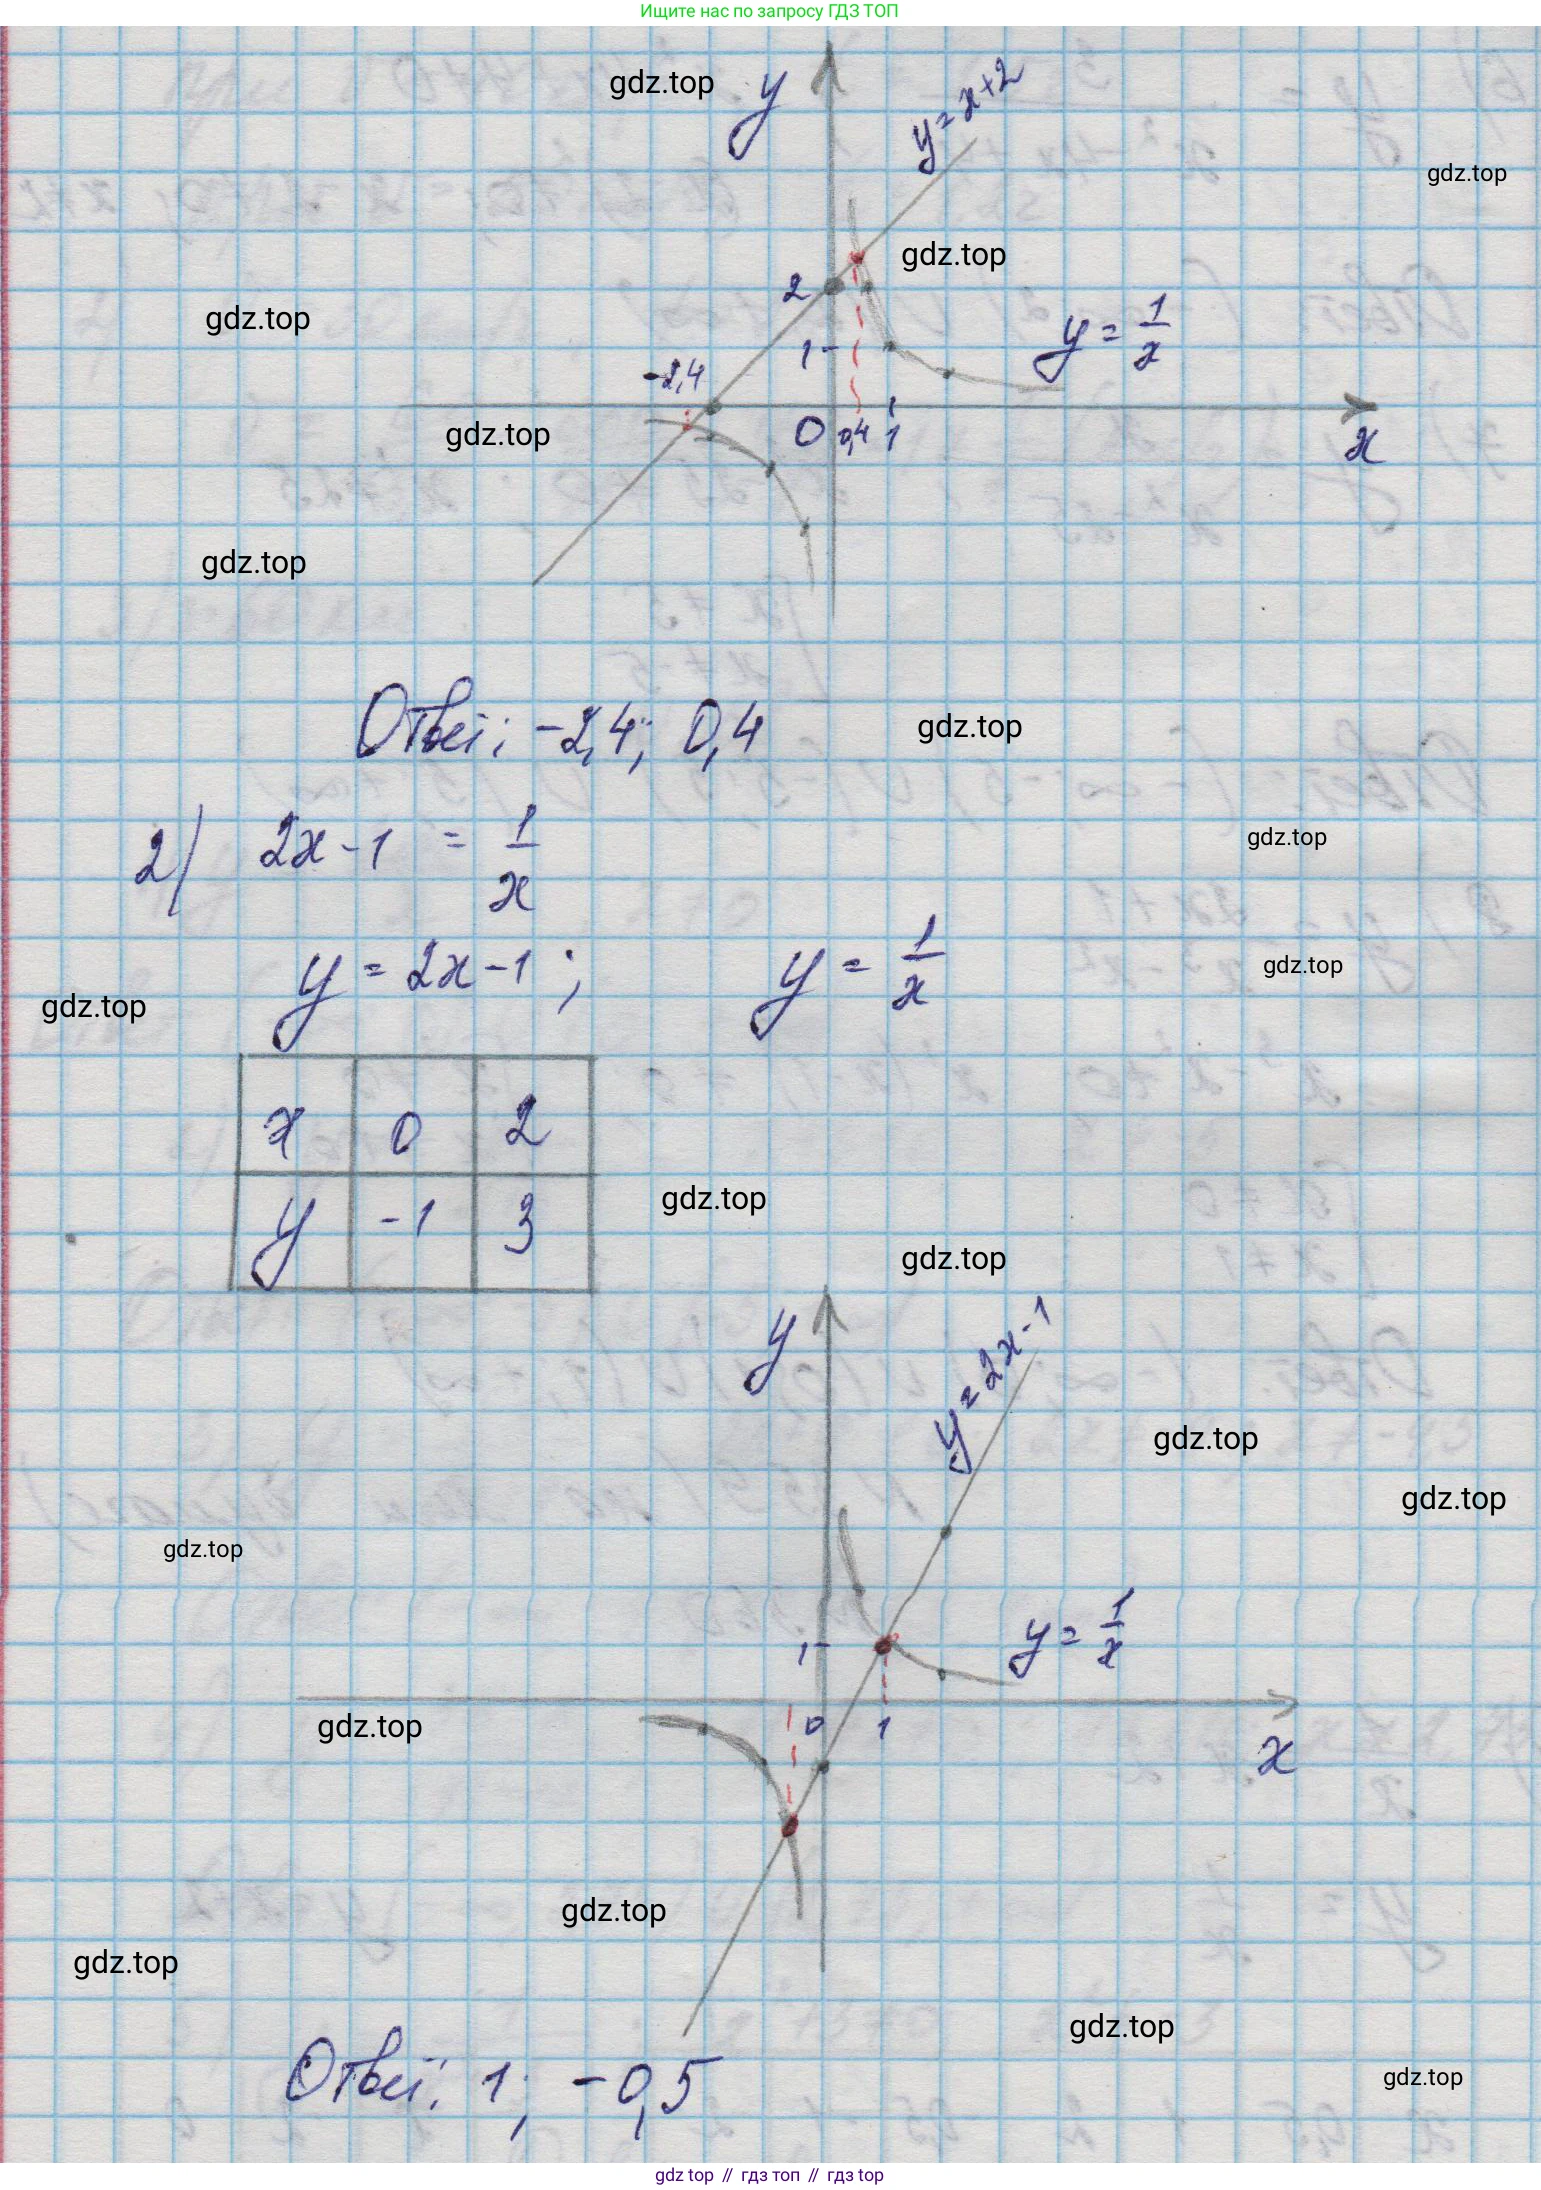 Ищите нас по запросу ГДЗ ТОП
y
y = x+2
gdz.top
gdz.top
gdz.top
2
gdz.top
1
y = 1/x
-2,4
gdz.top
0
0,4
1
x
gdz.top
Ответ: -2,4; 0,4
gdz.top
2) 2x - 1 = 1/x
gdz.top
y = 2x - 1; y = 1/x
gdz.top
gdz.top
x 0 2
y -1 3
gdz.top
gdz.top
y
y = 2x - 1
gdz.top
gdz.top
gdz.top
1
y = 1/x
gdz.top
0
1
x
gdz.top
gdz.top
gdz.top
Ответ: 1; -0,5
gdz.top
gdz top // гдз топ // gdz top